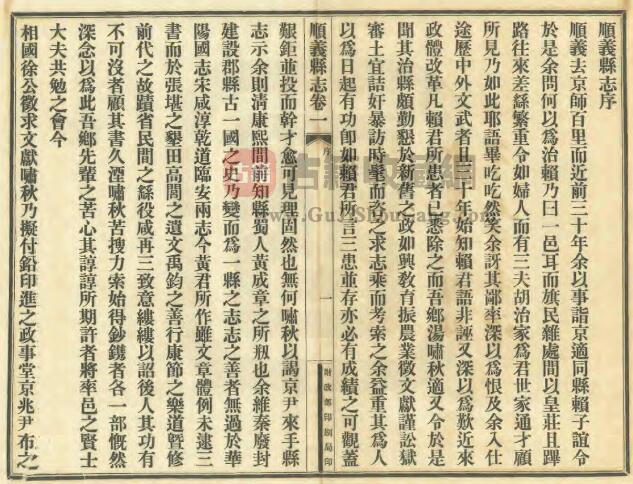 順義縣志序
順義去京師百里而近前三十年余以事詣京適同縣賴子誼令
於是余問何以為治賴乃曰一邑耳而旗民雜處間以皇莊且蹕
路往來差繇繁重令如婦人而有三夫胡治家為君世家通才顧
所見乃如此耶語畢吃吃然笑余訝其鄙率深以為恨及余入仕
途歷中外文武者且三十年始知賴君語非誣又深以為歎近來
政體改革凡賴君所患者已悉除之而吾鄉湯嘯秋適又令於是
聞其治縣頗勤懇於新舊之政如興教育振農業徵文獻謹訟獄
審土宜詰奸暴訪時髦而咨之求志乘而考索之余益重其為人
以為日起有功卽如賴君所言三患並存亦必有成績之可觀蓋
順義縣志卷一
序
一
財政部印刷局印
艱鉅並投而幹才愈可見理固然也無何嘯秋以謁京尹來手縣
志示余則清康熙間前知縣蜀人黃成章之所刱也余維秦廢封
建設郡縣古一國之史乃變而為一縣之志志之善者無過於華
陽國志宋咸淳乾道臨安兩志今黃君所作雖文章體例未逮三
書而於張堪之墾田高閭之遺文禹鈞之善行康節之樂道曁修
前代之故蹟省民間之繇役咸再三致意縷縷以詔後人其功有
不可沒者顧其書久湮嘯秋苦搜力索始得鈔鐫者各一部慨然
深念以為此吾鄉先輩之苦心其諄諄所期許者將率邑之賢士
大夫共勉之會今
相國徐公徵求文獻嘯秋乃擬付鉛印進之政事堂京兆尹布之